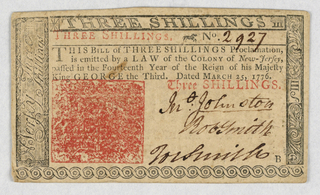 THREE SHILLINGS III
THREE SHILLINGS. No. 2927
THIS Bill of THREE SHILLINGS Proclamation,
is emitted by a LAW of the COLONY of New-Jersey,
passed in the Fourteenth Year of the Reign of his Majesty
King GEORGE the Third. Dated MARCH 25, 1776.
Three SHILLINGS.
Jno. Johnston
Robt Smith
Jos Smith
B
Three Shillings
III